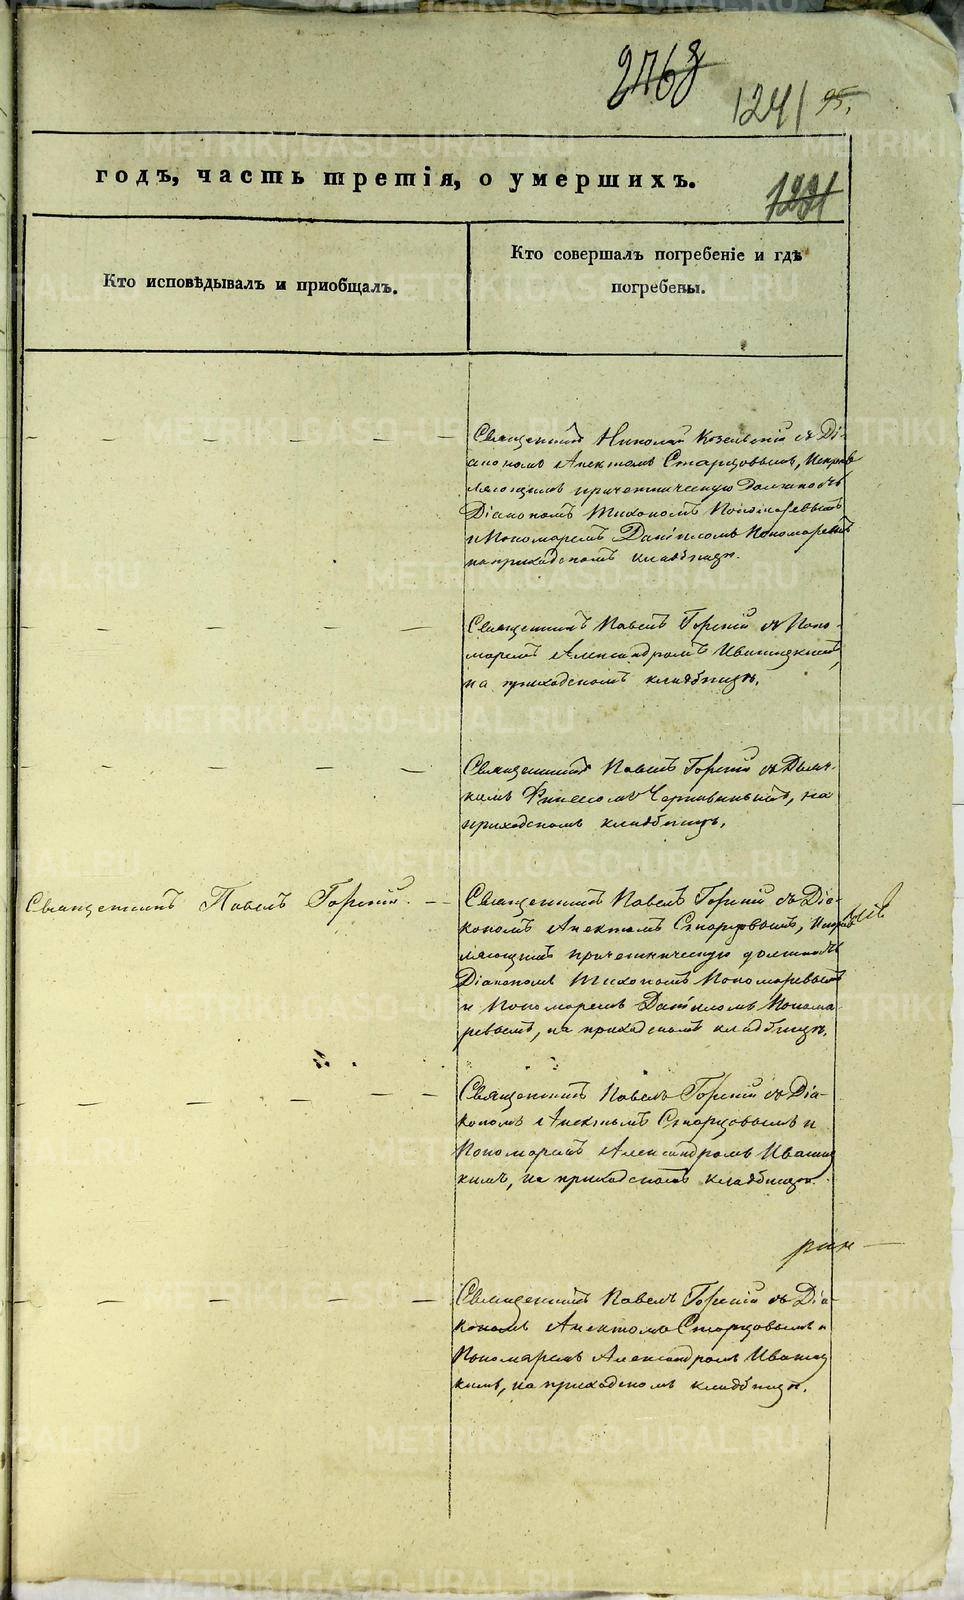 276
124 / 95.
годъ, часть третія, о умершихъ.
Кто исповѣдывалъ и пріобщалъ.
Кто совершалъ погребеніе и гдѣ
погребены.
Священникъ Николай Козельскій съ Ді-
акономъ Старцовымъ, Исправ
ляющимъ причетническую должность
Діакономъ Тихономъ Пономаревымъ
и Пономаремъ Даніиломъ Пономаревымъ
на приходскомъ кладбищѣ.
Священникъ Павелъ Горскій съ Поно-
маремъ Александромъ Ивановскимъ
на приходскомъ кладбищѣ.
Священникъ Павелъ Горскій съ Дьяч-
комъ на
приходскомъ кладбищѣ.
Священникъ Павелъ Горскій.
Священникъ Павелъ Горскій съ Діа-
кономъ Старцовымъ, Исправ
ляющимъ причетническую должность
Діакономъ Тихономъ Пономаревымъ
и Пономаремъ Даніиломъ Понома-
ревымъ, на приходскомъ кладбищѣ.
Священникъ Павелъ Горскій съ Діа-
кономъ Старцовымъ и
Пономаремъ Александромъ
на приходскомъ кладбищѣ.
Священникъ Павелъ Горскій съ Діа-
кономъ Старцовымъ и
Пономаремъ Александромъ
на приходскомъ кладбищѣ.
METRIKI.GASO-URAL.RU